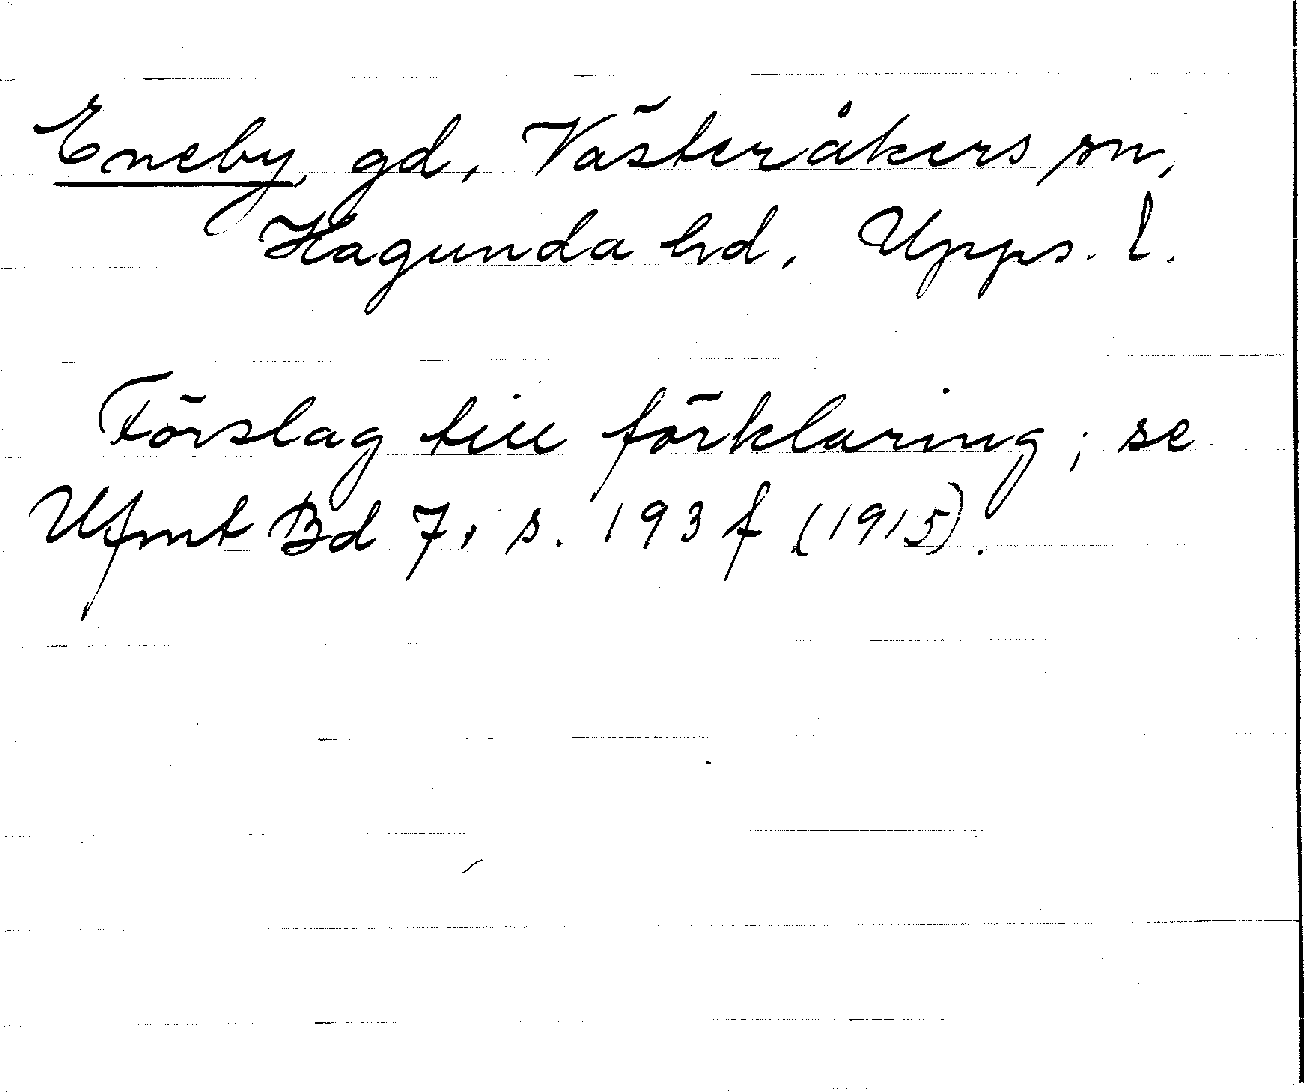 Eneby, gd, Västeråkers sn,
Hagunda hd, Upps. l.
Förslag till förklaring; se
Ufmt Bd 7, s. 193 f (1915).